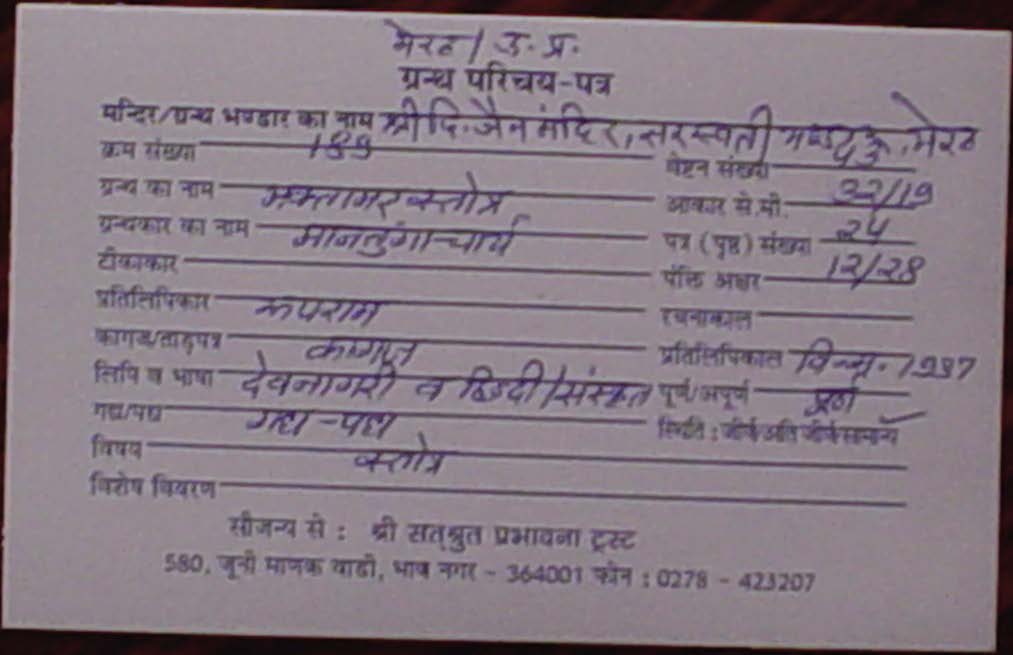 मेरठ / उ. प्र.
ग्रन्थ परिचय-पत्र
मन्दिर/ग्रन्थ भण्डार का नाम श्री दि. जैन मंदिर, सरस्वती मेरठ
क्रम संख्या 189 वेष्टन संख्या
ग्रन्थ का नाम भक्तामर स्तोत्र आकार से.मी. 32/19
ग्रन्थकार का नाम मानतुंगाचार्य पत्र (पृष्ठ) संख्या 24
टीकाकार पंक्ति अक्षर 12/28
प्रतिलिपिकार रूपराम रचनाकाल
कागज/ताड़पत्र कागज प्रतिलिपिकाल
लिपि व भाषा देवनागरी व हिन्दी/संस्कृत पूर्ण/अपूर्ण पूर्ण
गद्य/पद्य गद्य-पद्य स्थिति : जीर्ण अति जीर्ण सामान्य ✓
विषय स्तोत्र
विशेष विवरण
सौजन्य से : श्री सत्श्रुत प्रभावना ट्रस्ट
580, जूनी माणक वाडी, भाव नगर - 364001 फोन : 0278 - 423207